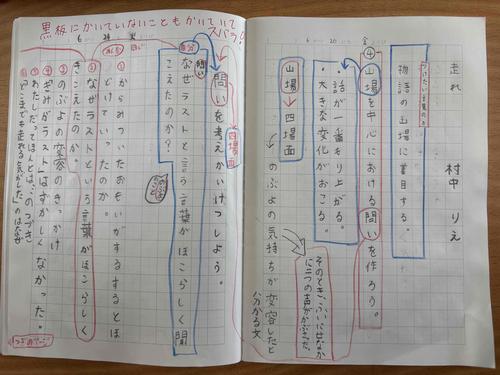 黒板にかいていないこともかいていてスバラ!
走れ
村中 りえ
つけたい言葉の力
物語の山場に着目する。
6 20 金
④山場を中心における問いを作ろう。
・話が一番もり上がる。
・大きな変化がおこる。
山場→四場面
そのとき、ふいにせなかに二つの声がかさなった。
のぶよの気持ちが変容したと分かる文
6 24 火
四場面
問いを考えかいけつしよう。
自分
問い
なぜラストと言う言葉がほこらしく聞こえたのか?
①からみついたおもいがするするとほどけていったのか。
②なぜラストという言葉がほこらしくきこえたのか。
③のぶよの変容のきっかけ
④ぎみがラストはずかしくなかった。
⑤わたしだってほんとは、このつづき
⑥どこまでも走れる気がした」のはなぜ
つぎのページ